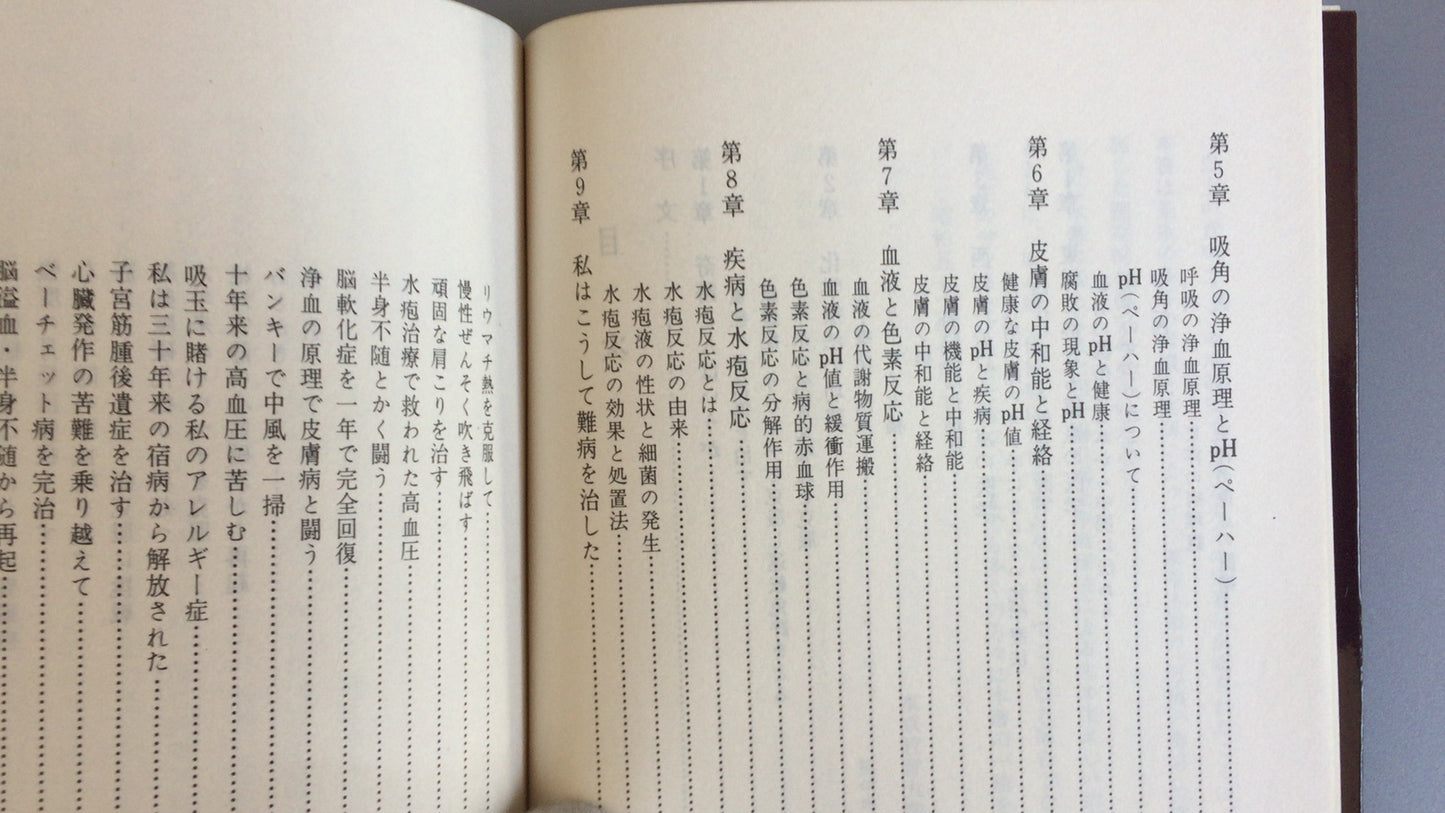 第5章　吸角の浄血原理とpH(ペーハー)…………
呼吸の浄血原理…………
吸角の浄血原理…………
pH(ペーハー)について…………
血液のpHと健康…………
腐敗の現象とpH…………
第6章　皮膚の中和能と経絡…………
健康な皮膚のpH値…………
皮膚のpHと疾病…………
皮膚の機能と中和能…………
皮膚の中和能と経絡…………
第7章　血液と色素反応…………
血液の代謝物質運搬…………
血液のpH値と緩衝作用…………
色素反応と病的赤血球…………
色素反応の分解作用…………
第8章　疾病と水疱反応…………
水疱反応とは…………
水疱反応の由来…………
水疱液の性状と細菌の発生…………
水疱反応の効果と処置法…………
第9章　私はこうして難病を治した…………
リウマチ熱を克服して…………
慢性ぜんそく吹き飛ばす…………
頑固な肩こりを治す…………
水疱治療で救われた高血圧…………
半身不随とかく闘う…………
脳軟化症を一年で完全回復…………
浄血の原理で皮膚病と闘う…………
バンキーで中風を一掃…………
十年来の高血圧に苦しむ…………
吸玉に賭ける私のアレルギー症…………
私は三十年来の宿病から解放された…………
子宮筋腫後遺症を治す…………
心臓発作の苦難を乗り越えて…………
ベーチェット病を完治…………
脳溢血・半身不随から再起…………